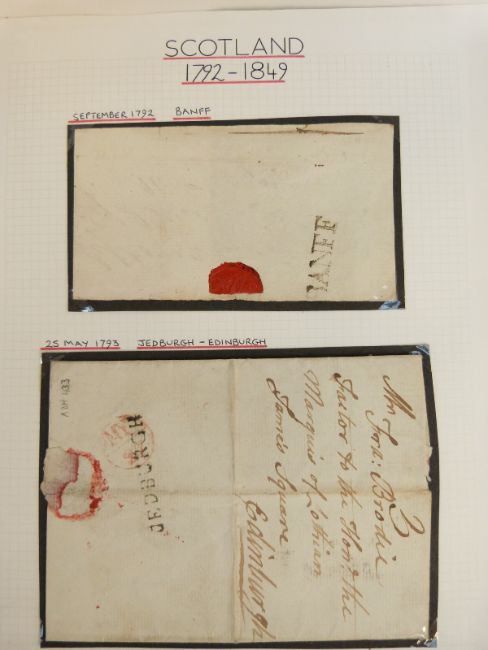 SCOTLAND
1792-1849
SEPTEMBER 1792 BANFF
BANFF
25 MAY 1793 JEDBURGH - EDINBURGH
JEDBURGH
3
Mr Jno: Brodie
Factor to the Honble the
Marquis of Lothian
James Square
Edinburgh